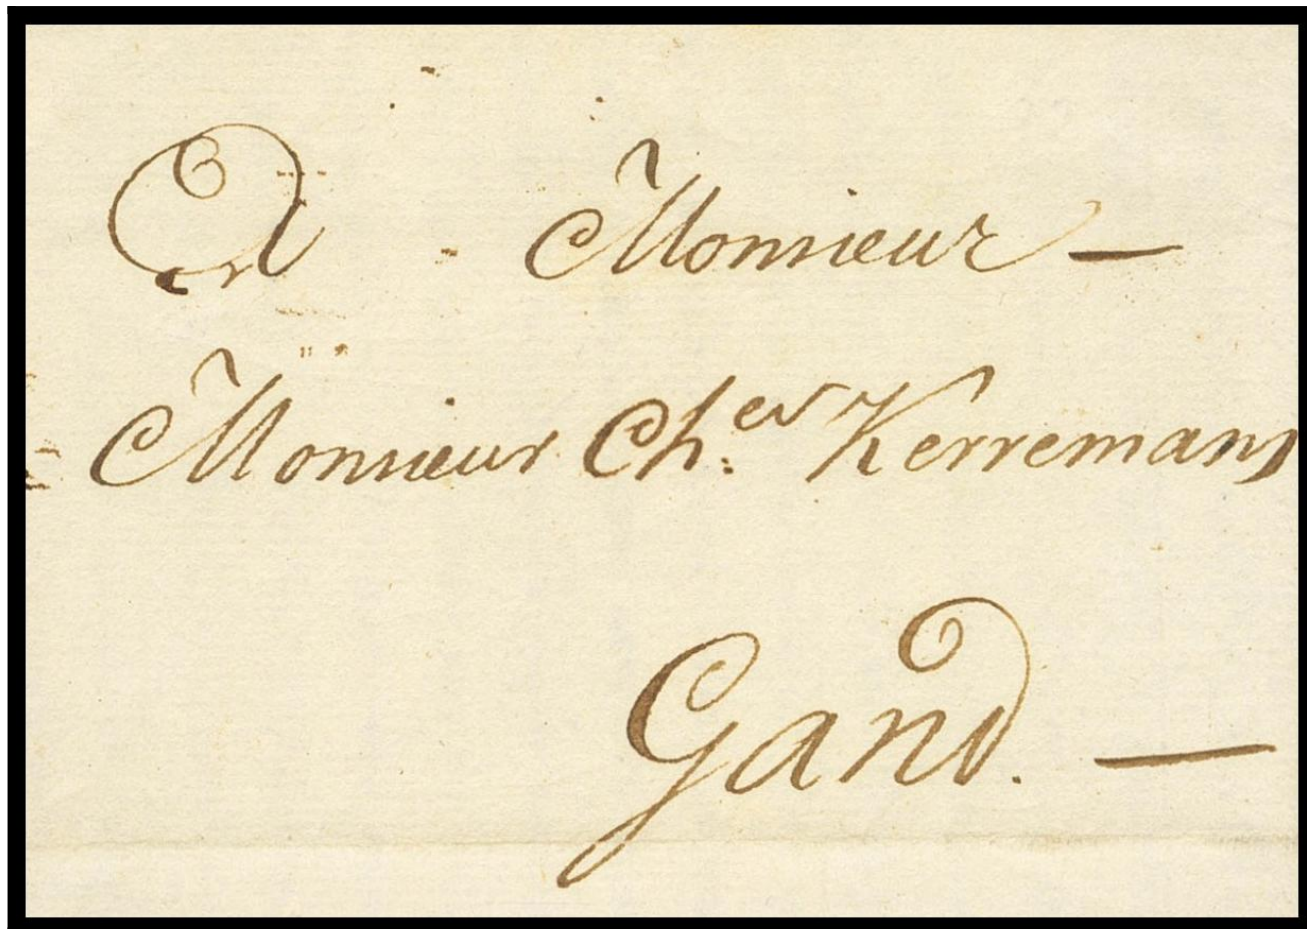 A Monsieur —
Monsieur Ch:es Kerremans
Gand. —